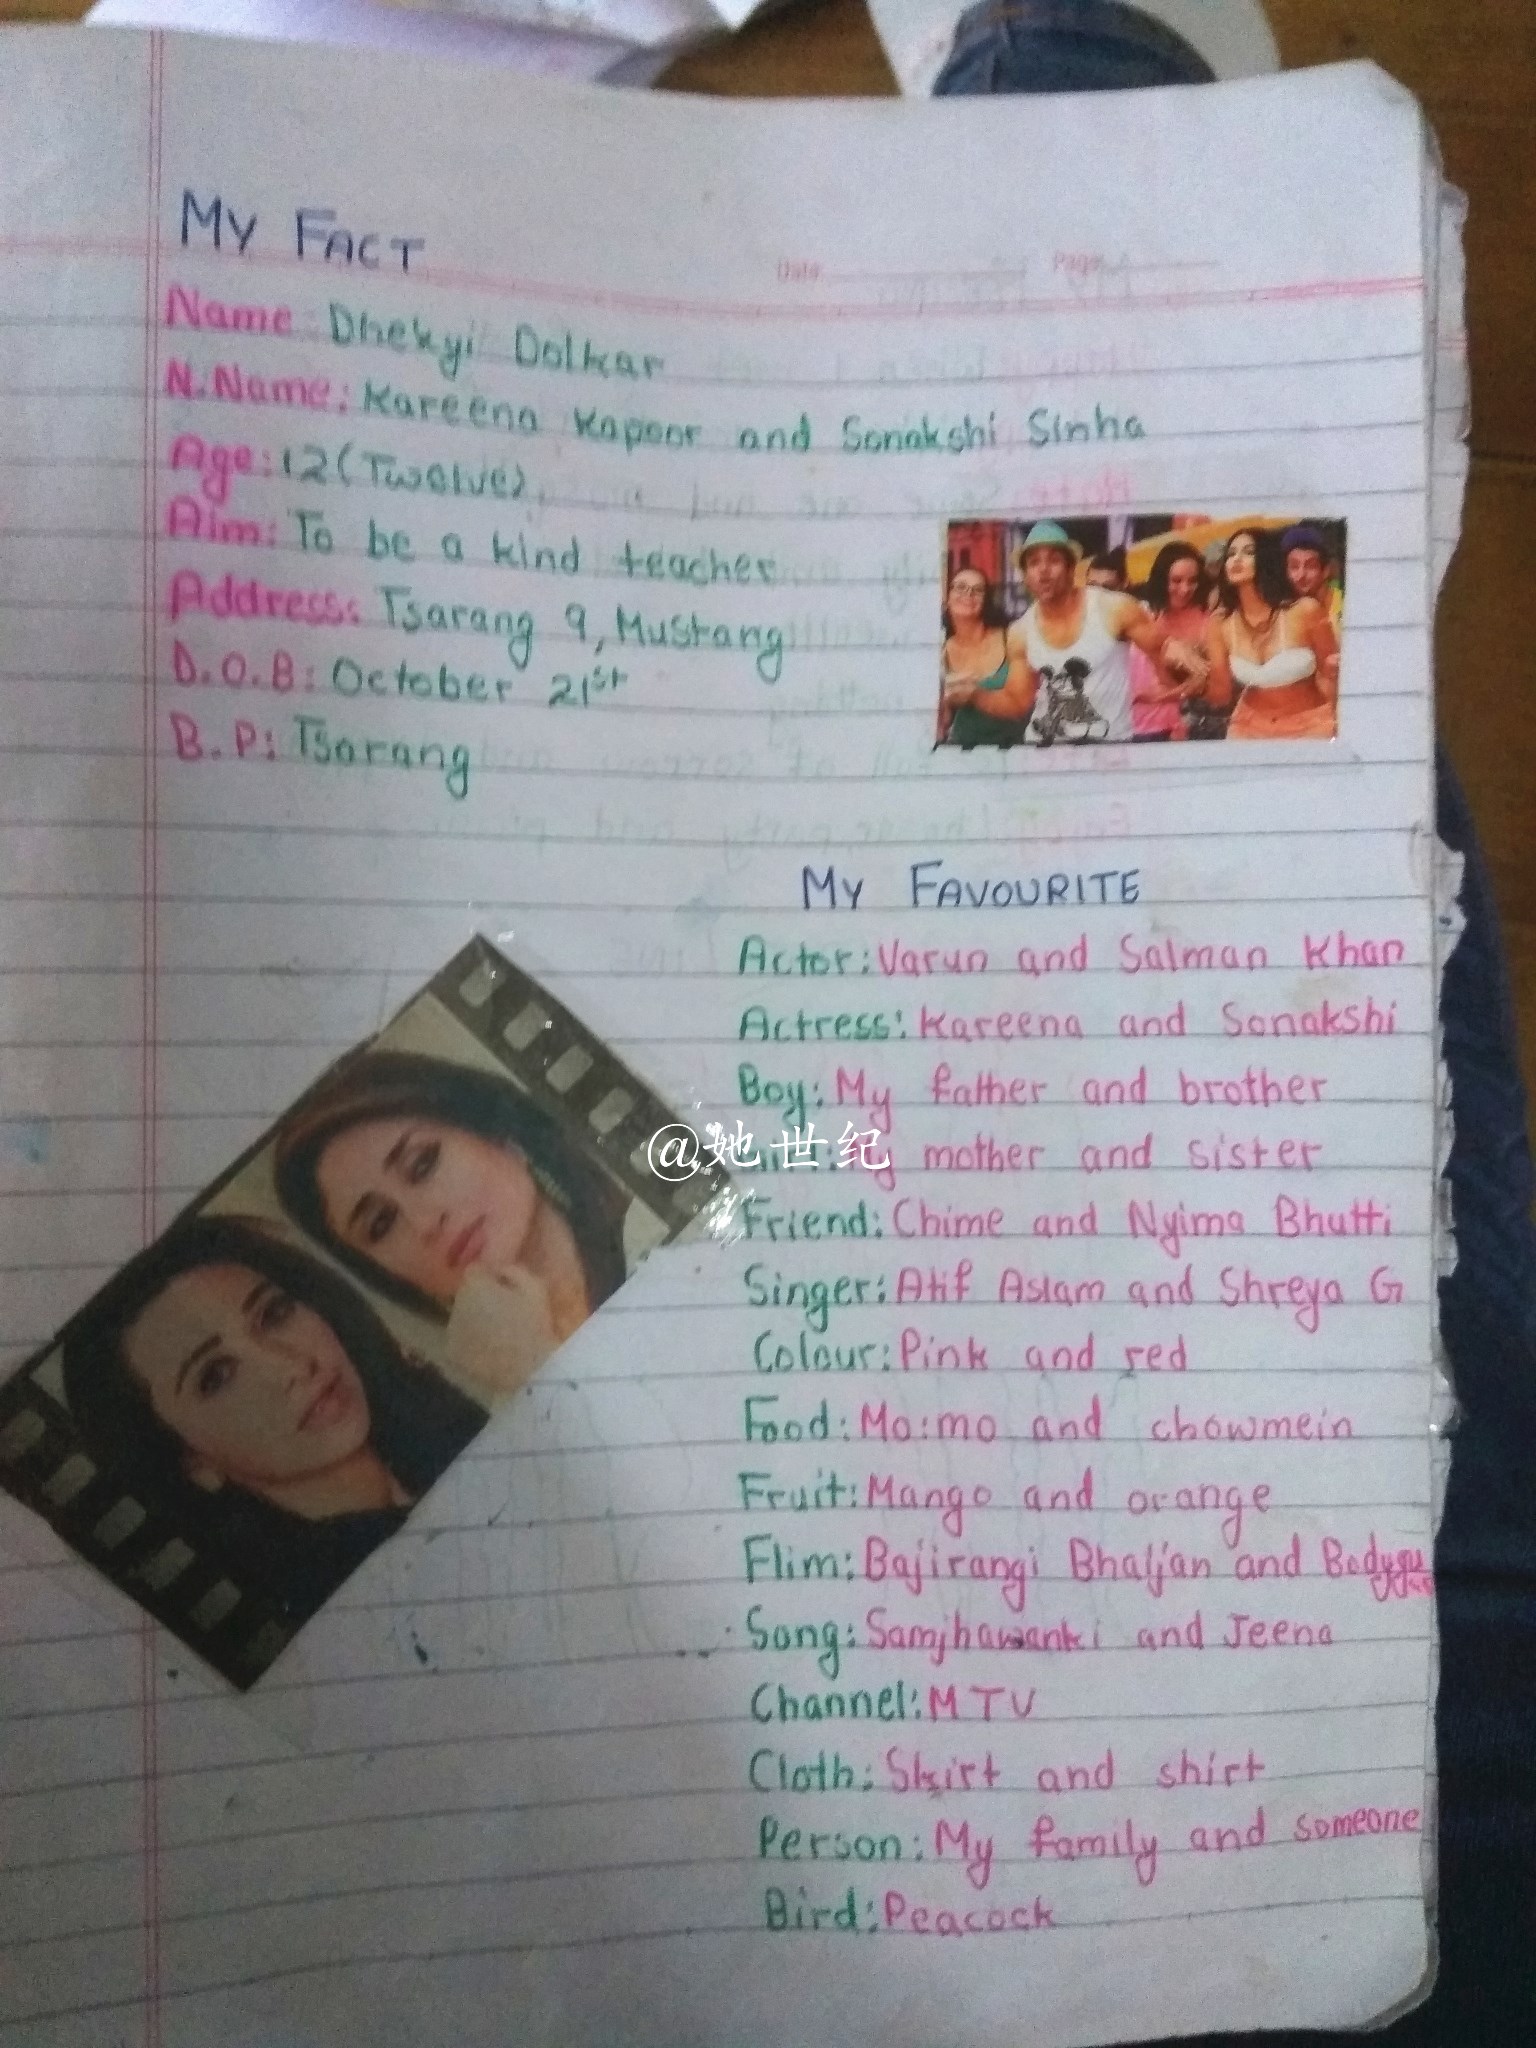 MY FACT
Date Page
Name: Dhekyi Dolkar
N.Name: Kareena Kapoor and Sonakshi Sinha
Age: 12 (Twelve)
Aim: To be a kind teacher
Address: Tsarang 9, Mustang
D.O.B: October 21st
B.P: Tsarang
MY FAVOURITE
Actor: Varun and Salman Khan
Actress: Kareena and Sonakshi
Boy: My father and brother
@她世纪
My mother and sister
Friend: Chime and Nyima Bhutti
Singer: Atif Aslam and Shreya G
Colour: Pink and red
Food: Mo:mo and chowmein
Fruit: Mango and orange
Flim: Bajirangi Bhaijan and
Song: Samjhawanki and Jeena
Channel: MTV
Cloth: Skirt and shirt
Person: My family and someone
Bird: Peacock